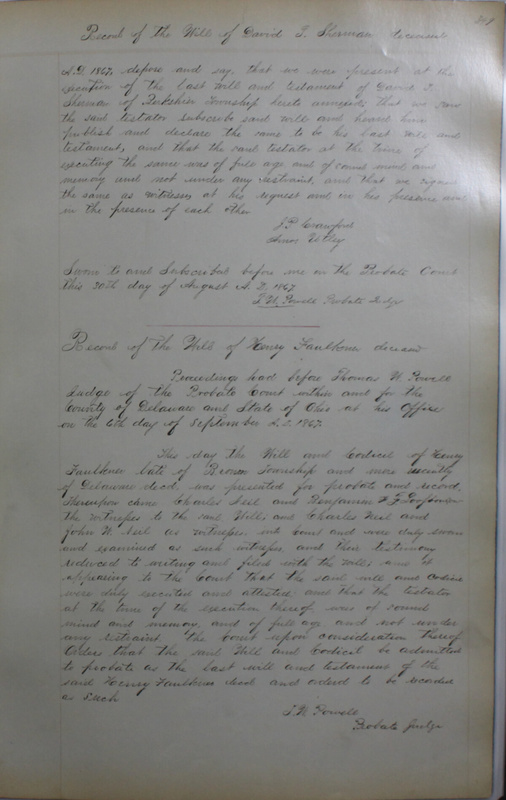 Record of the Will of David T. Sherman deceased
A.D. 1867, depose and say, that we were present at the
execution of the last will and testament of David T.
Sherman of Berkshire Township hereto annexed that we saw
the said testator subscribe said will and heard him
publish and declare the same to be his last will and
testament, and that the said testator at the time of
executing the same was of full age and of sound mind and
memory and not under any restraint, and that we signed
the same as witnesses at his request and in his presence and
in the presence of each other
J. P. Crawford
Amos Utley
Sworn to and Subscribed before me in the Probate Court
this 20th day of August A.D. 1867
T. W. Powell Probate Judge
Record of the Will of Henry Faulkner deceased
Proceedings had before Thomas W. Powell
Judge of the Probate Court within and for the
County of Delaware and State of Ohio at his Office
on the 6th day of September A.D. 1867.
This day the Will and Codicil of Henry
Faulkner late of Brown Township and more recently
of Delaware decd, was presented for probate and record,
Thereupon came Charles Neil and Benjamin F
the witnesses to the said Will, and Charles Neil and
John W. Neil as witnesses, into Court and were duly sworn
and examined as such witnesses and their testimony
reduced to writing and filed with the will, and it
appearing to the Court that the said will and Codicil
were duly executed and attested and that the testator
at the time of the execution thereof, was of sound
mind and memory, and of full age and not under
any restraint. The Court upon consideration thereof
Orders that the said Will and Codicil be admitted
to probate as the last will and testament of the
said Henry Faulkner decd and ordered to be recorded
as Such
T. W. Powell
Probate Judge